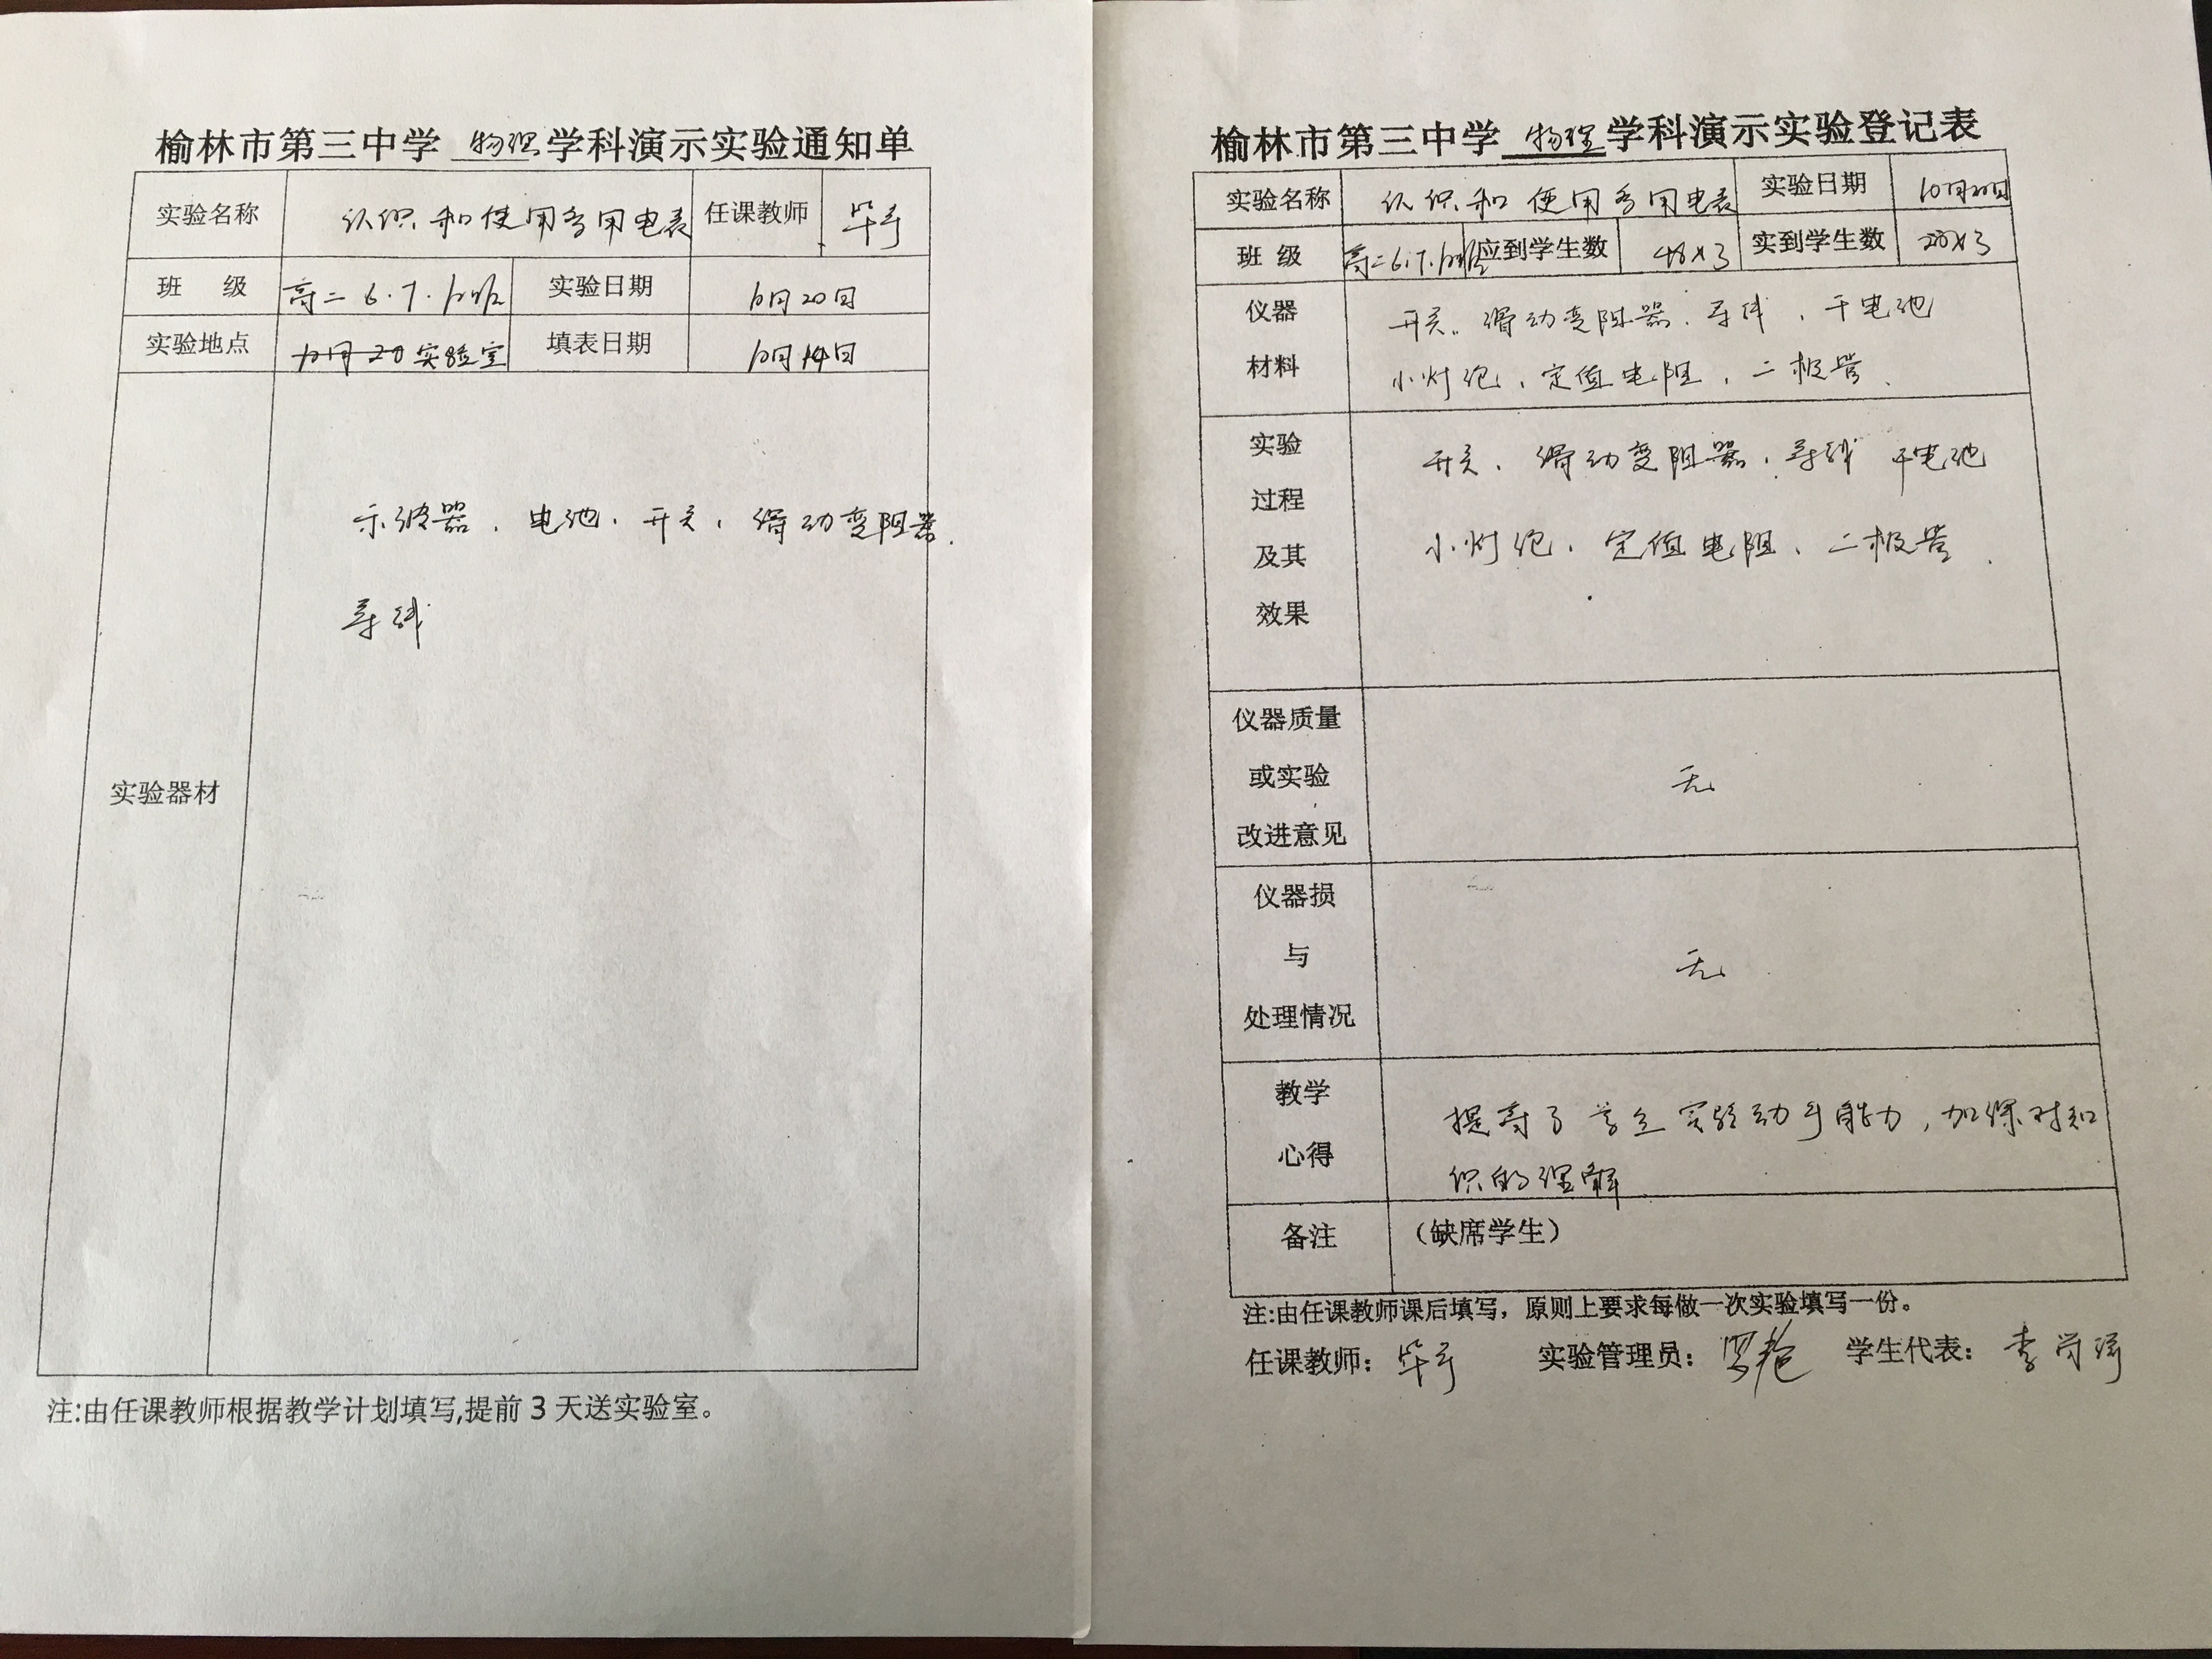 榆林市第三中学 物理 学科演示实验通知单
实验名称 认识和使用多用电表 任课教师 毕于
班 级 高二6.7.10班 实验日期 10月20日
实验地点 实验室 填表日期 10月14日
示波器、电池、开关、滑动变阻器、
导线
实验器材
注:由任课教师根据教学计划填写,提前3天送实验室。
榆林市第三中学 物理 学科演示实验登记表
实验名称 认识和使用多用电表 实验日期 10月20日
班 级 高二6.7.10班 应到学生数 48×3 实到学生数
仪器
材料
开关、滑动变阻器、导线、干电池
小灯泡、定值电阻、二极管、
实验
过程
及其
效果
开关、滑动变阻器、导线 干电池
小灯泡、定值电阻、二极管、
仪器质量
或实验
改进意见
无
仪器损
与
处理情况
无
教学
心得
提高了学生实验动手能力,加深对知
识的理解
备注 (缺席学生)
注:由任课教师课后填写,原则上要求每做一次实验填写一份。
任课教师: 毕于 实验管理员: 学生代表: 李